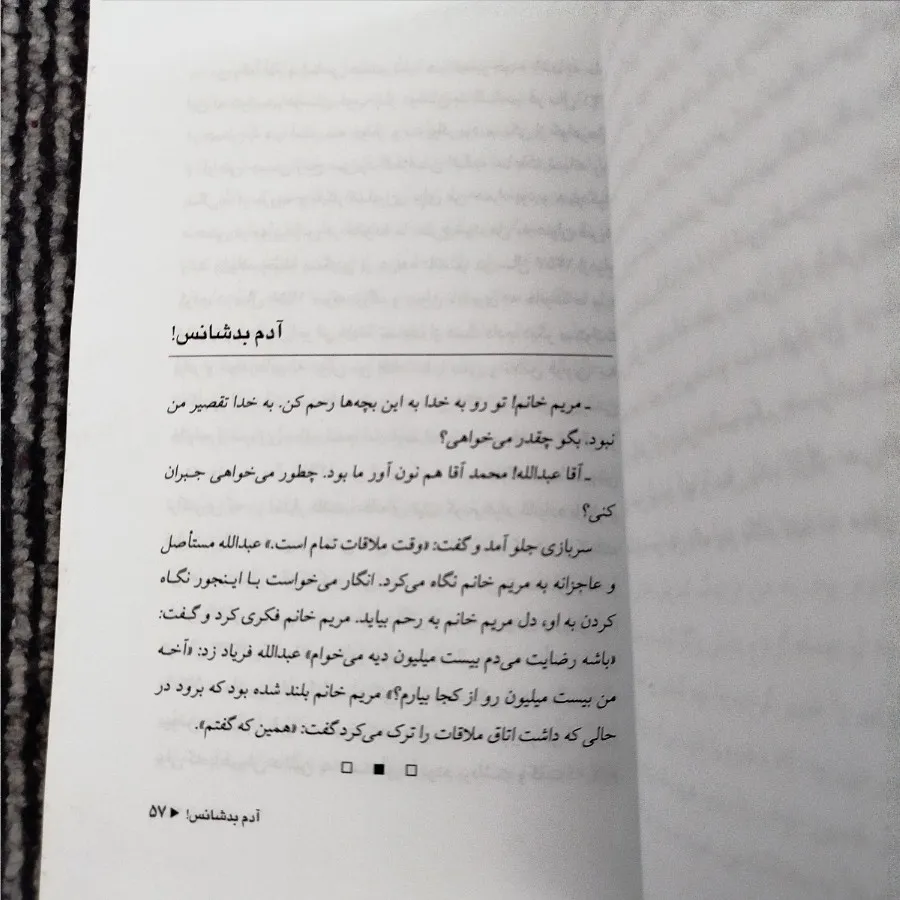 آدم بدشانس!
ـ مریم خانم! تو رو به خدا به این بچه‌ها رحم کن. به خدا تقصیر من
نبود. بگو چقدر می‌خواهی؟
ـ آقا عبدالله! محمد آقا هم نون آور ما بود. چطور می‌خواهی جبران
کنی؟
سربازی جلو آمد و گفت: «وقت ملاقات تمام است.» عبدالله مستأصل
و عاجزانه به مریم خانم نگاه می‌کرد. انگار می‌خواست با اینجور نگاه
کردن به او، دل مریم خانم به رحم بیاید. مریم خانم فکری کرد و گفت:
«باشه رضایت می‌دم بیست میلیون دیه می‌خوام» عبدالله فریاد زد: «آخه
من بیست میلیون رو از کجا بیارم؟» مریم خانم بلند شده بود که برود در
حالی که داشت اتاق ملاقات را ترک می‌کرد گفت: «همین که گفتم».
آدم بدشانس! ◄ ۵۷